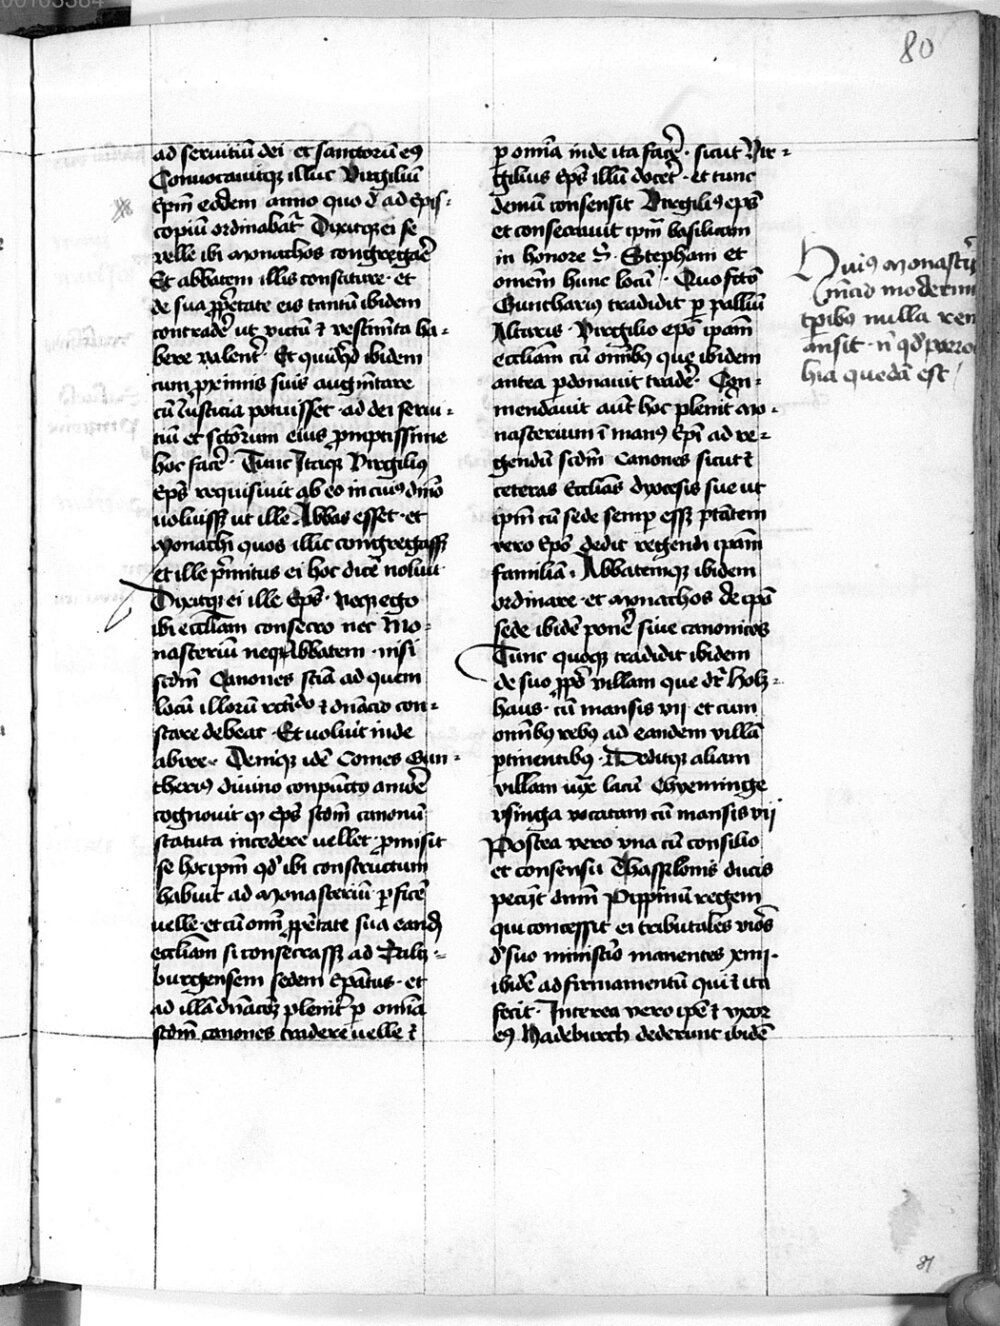 80
ad seruitiū dei et sanctorū eꝰ
Conuocauitqꝫ illuc Virgiliū
Epm̄ eodem anno quo d̄ ad Epis-
copiū ordinabat᷑ Dixitqꝫ ei se
velle ibi monachos congregar̄e
Et abbatem illis constituere et
de sua ꝓp̄etate eis tantū ibidem
contrader̄ ut victū ⁊ vestim̄ta ha-
bere valent᷑ Et quidq̄d ibidem
cum proximis suis augm̄tare
cū Iusticia potuisset ad dei serui-
tiū et sctōrum eius promptissime
hoc facer̄ Tunc Itaqꝫ Virgiliꝰ
Ep̄s requisiuit ab eo in ciuꝰ dn̄io
uoluisꝫ ut ille Abbas esset et
monachi quos illic congregassꝫ
et ille p̄mitus ei hoc dicer̄ noluit
Dixitqꝫ ei ille Ep̄s Neqꝫ ego
ibi eccliam consecro nec Mo-
nasterium neqꝫ Abbatem nisi
scdm̄ Canones sciā ad quem
locū illorū rectitudo ⁊ dn̄acio con-
stare debeat Et uoluit inde
abire Deniqꝫ idē Comes Gun-
therius diuino conpūctꝰ amore
cognouit qꝫ Ep̄s scdm̄ canonū
statuta incedere uellet promisit
se hoc ipm̄ qd̄ ibi constructum
habuit ad monasteriū ꝑficer̄
velle et cū omī ꝓp̄etate sua eandē
eccliam si consecrassꝫ ad Saltz-
burgensem sedem Epatus et
ad illā dn̄acōꝫ plenit᷑ ꝑ omīa
scdm̄ canones tradere uelle ⁊
ꝑ omīa inde ita facer̄ sicut Vir-
gilius Ep̄s illū docer̄ et tunc
demū consensit Virgiliꝰ ep̄s
et consecrauit ipm̄ basilicam
in honore S. Stephani et
omem̄ hunc locū Quo fctō
Guntharius tradidit ꝑ palliū
Altaris Virgilio ep̄o ipam̄
eccliam cū omībꝰ que ibidem
antea ꝑdonauit trader̄ Con-
mendauit aut̄ hoc plenit᷑ mo-
nasterium ī manꝰ Ep̄i ad re-
gendū scdm̄ Canones sicut ⁊
ceteras Ecclias dyocesis sue ut
ipm̄ cū sede semp̄ essꝫ p̄tatem
vero Ep̄s dedit regendi ipam̄
familiā Abbatemqꝫ ibidem
ordinare et monachos de ipā
sede ibidē poner̄ siue canonicos
Tunc quoqꝫ tradidit ibidem
de suo ꝓp̄o villam que dr̄ Holtz-
haus cū mansis vii et cum
omībꝰ rebꝰ ad eandem villā
ꝑtinentibꝰ Deditqꝫ aliam
villam iux̄ lacū Chyeminge
vsinga vocatam cū mansis vii
Postea vero vna cū consilio
et consensu Thassilonis ducis
peciit dnm̄ Pippinū regem
qui concessit ei tributales viros
d̄ suo ministr̄io manentes xiiii
ibidē ad firmamentū qui ⁊ ita
fecit Interea vero ipē ⁊ vxor
eꝰ Hadeburch dederunt ibidē
Huiꝰ monastr̄ij
mēcio modernis
tp̄ibꝰ nulla rem
ansit nⁱ qd̄ parro
hia quedā est